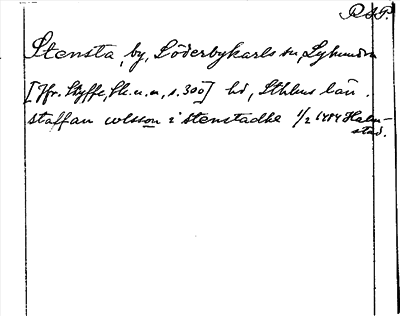 R.A.P.
Stensta, by, Söderbykarls sn, Lyhundra
[Jfr. Styffe, Sk. u. u, s. 300] hd, Sthlms län.
staffan olsson i stenstadhe 1/2 1484 Halm-
stad.